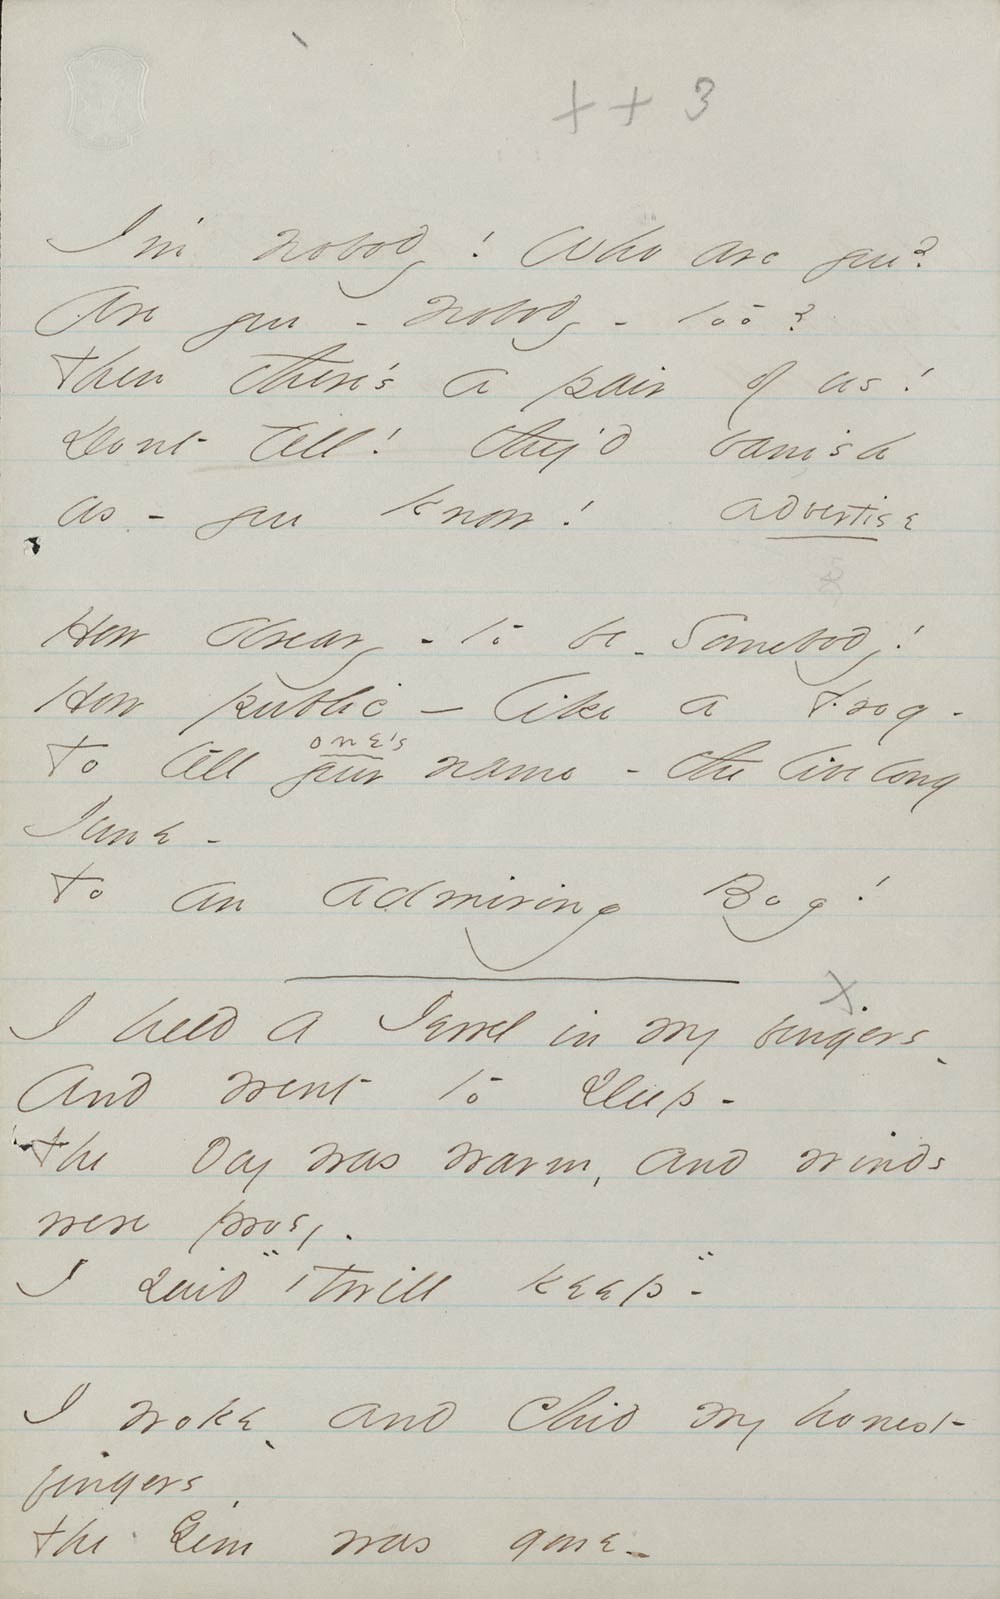 x x 3
I'm nobody! Who are you?
Are you - Nobody - too?
Then there's a pair of us!
Dont tell! they'd banish
us - you know!   advertise
How dreary - to be - Somebody!
How public - like a Frog -
one's
To tell your name - the livelong
June -
To an admiring Bog!
x
I held a Jewel in my fingers -
And went to sleep -
The day was warm, and winds
were prosy -
I said "'Twill keep" -
I woke - and chid my honest
fingers,
The Gem was gone -